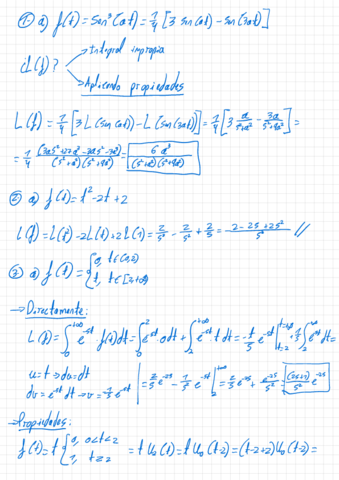 ① a) f(t) = sen³(at) = 1/4 [3 sen(at) - sen(3at)]
L(f)? Integral impropia
Aplicando propiedades
L(f) = 1/4 [3 L(sen(at)) - L(sen(3at))] = 1/4 [3 a/(s²+a²) - 3a/(s²+9a²)] =
= 1/4 (3as²+27a³-3as²-3a³)/((s²+a²)(s²+9a²)) = 6a³/((s²+a²)(s²+9a²))
② a) f(t) = t² - 2t + 2
L(f) = L(t²) - 2L(t) + 2L(1) = 2/s³ - 2/s² + 2/s = (2-2s+2s²)/s³ //
a) f(t) = { 0, t∈(0,2)
t, t∈[2,+∞)
→ Directamente:
L(f) = ∫₀^{+∞} e^{-st} · f(t)dt = ∫₀² e^{-st} · 0dt + ∫₂^{+∞} e^{-st} t dt = -t/s e^{-st} |_{t=2}^{t=+∞} + 1/s ∫₂^{+∞} e^{-st} dt =
u = t → du = dt
dv = e^{-st} dt → v = -1/s e^{-st} | = 2/s e^{-2s} - 1/s² e^{-st} |₂^{+∞} = 2/s e^{-2s} + e^{-2s}/s² = (2s+1)/s² e^{-2s}
→ Propiedades:
f(t) = t { 0, 0<t<2
1, t≥2 = t U₀(t) = t U₀(t-2) = (t-2+2)U₀(t-2) =